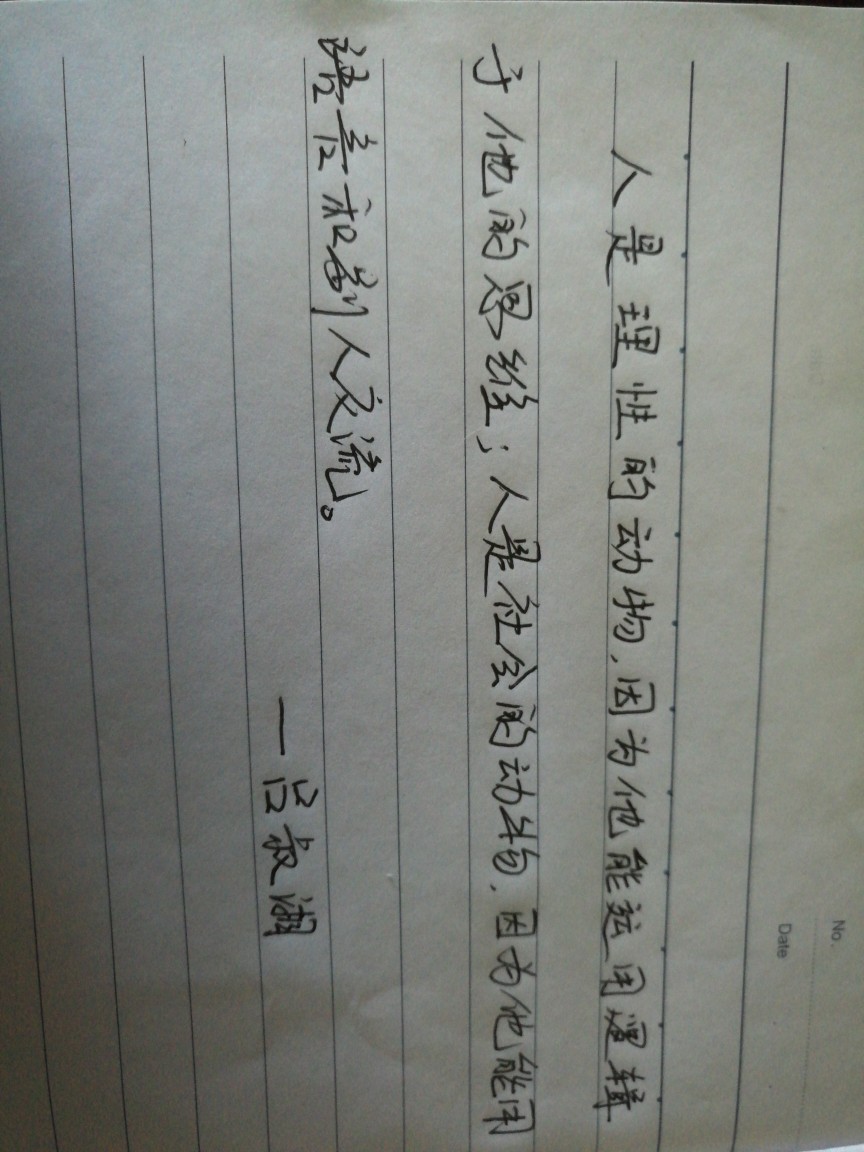 No.
Date
人是理性的动物,因为他能运用逻辑
于他的思维;人是社会的动物,因为他能用
语言和别人交流。
—吕叔湘